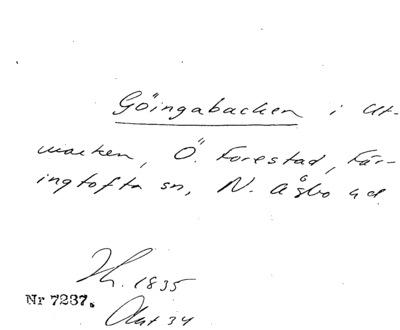 Göingabacken i Ut-
marken, Ö. Forestad, Fär-
ingtofta sn, N. Åsbo hd
H. 1835
Nr 7237.
34